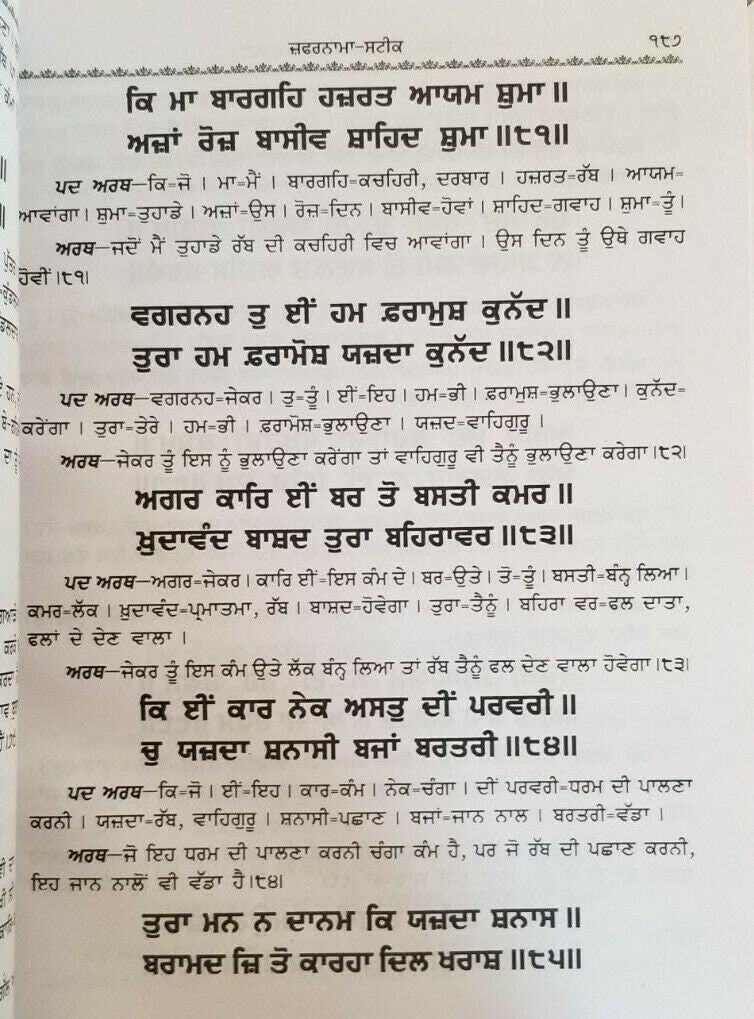 ਜ਼ਫਰਨਾਮਾ-ਸਟੀਕ
੧੮੭
ਕਿ ਮਾ ਬਾਰਗਹਿ ਹਜ਼ਰਤ ਆਯਮ ਸ਼ੁਮਾ॥
ਅਜ਼ਾਂ ਰੋਜ਼ ਬਾਸੀਵ ਸ਼ਾਹਿਦ ਸ਼ੁਮਾ॥੮੧॥
ਪਦ ਅਰਥ—ਕਿ=ਜੋ। ਮਾ=ਮੈਂ। ਬਾਰਗਹਿ=ਕਚਹਿਰੀ, ਦਰਬਾਰ। ਹਜ਼ਰਤ=ਰੱਬ। ਆਯਮ=
ਆਵਾਂਗਾ। ਸ਼ੁਮਾ=ਤੁਹਾਡੇ। ਅਜ਼ਾਂ=ਉਸ। ਰੋਜ਼=ਦਿਨ। ਬਾਸੀਵ=ਹੋਵਾਂ। ਸ਼ਾਹਿਦ=ਗਵਾਹ। ਸ਼ੁਮਾ=ਤੂੰ।
ਅਰਥ—ਜਦੋਂ ਮੈਂ ਤੁਹਾਡੇ ਰੱਬ ਦੀ ਕਚਹਿਰੀ ਵਿਚ ਆਵਾਂਗਾ। ਉਸ ਦਿਨ ਤੂੰ ਉਥੇ ਗਵਾਹ
ਹੋਵੀਂ।੮੧।
ਵਗਰਨਹ ਤੁ ਈਂ ਹਮ ਫ਼ਰਾਮੁਸ਼ ਕੁਨੱਦ॥
ਤੁਰਾ ਹਮ ਫ਼ਰਾਮੋਸ਼ ਯਜ਼ਦਾ ਕੁਨੱਦ॥੮੨॥
ਪਦ ਅਰਥ—ਵਗਰਨਹ=ਜੇਕਰ। ਤੁ=ਤੂੰ। ਈਂ=ਇਹ। ਹਮ=ਭੀ। ਫ਼ਰਾਮੁਸ਼=ਭੁਲਾਉਣਾ। ਕੁਨੱਦ=
ਕਰੇਂਗਾ। ਤੁਰਾ=ਤੇਰੇ। ਹਮ=ਭੀ। ਫ਼ਰਾਮੋਸ਼=ਭੁਲਾਉਣਾ। ਯਜ਼ਦ=ਵਾਹਿਗੁਰੂ।
ਅਰਥ—ਜੇਕਰ ਤੂੰ ਇਸ ਨੂੰ ਭੁਲਾਉਣਾ ਕਰੇਂਗਾ ਤਾਂ ਵਾਹਿਗੁਰੂ ਵੀ ਤੈਨੂੰ ਭੁਲਾਉਣਾ ਕਰੇਗਾ।੮੨।
ਅਗਰ ਕਾਰਿ ਈਂ ਬਰ ਤੋ ਬਸਤੀ ਕਮਰ॥
ਖ਼ੁਦਾਵੰਦ ਬਾਸ਼ਦ ਤੁਰਾ ਬਹਿਰਾਵਰ॥੮੩॥
ਪਦ ਅਰਥ—ਅਗਰ=ਜੇਕਰ। ਕਾਰਿ ਈਂ=ਇਸ ਕੰਮ ਦੇ। ਬਰ=ਉਤੇ। ਤੋ=ਤੂੰ। ਬਸਤੀ=ਬੰਨ੍ਹ ਲਿਆ।
ਕਮਰ=ਲੱਕ। ਖ਼ੁਦਾਵੰਦ=ਪ੍ਰਮਾਤਮਾ, ਰੱਬ। ਬਾਸ਼ਦ=ਹੋਵੇਗਾ। ਤੁਰਾ=ਤੈਨੂੰ। ਬਹਿਰਾ ਵਰ=ਫਲ ਦਾਤਾ,
ਫਲਾਂ ਦੇ ਦੇਣ ਵਾਲਾ।
ਅਰਥ—ਜੇਕਰ ਤੂੰ ਇਸ ਕੰਮ ਉਤੇ ਲੱਕ ਬੰਨ੍ਹ ਲਿਆ ਤਾਂ ਰੱਬ ਤੈਨੂੰ ਫਲ ਦੇਣ ਵਾਲਾ ਹੋਵੇਗਾ।੮੩।
ਕਿ ਈਂ ਕਾਰ ਨੇਕ ਅਸਤੁ ਦੀਂ ਪਰਵਰੀ॥
ਚੁ ਯਜ਼ਦਾ ਸ਼ਨਾਸੀ ਬਜਾਂ ਬਰਤਰੀ॥੮੪॥
ਪਦ ਅਰਥ—ਕਿ=ਜੋ। ਈਂ=ਇਹ। ਕਾਰ=ਕੰਮ। ਨੇਕ=ਚੰਗਾ। ਦੀਂ ਪਰਵਰੀ=ਧਰਮ ਦੀ ਪਾਲਣਾ
ਕਰਨੀ। ਯਜ਼ਦਾ=ਰੱਬ, ਵਾਹਿਗੁਰੂ। ਸ਼ਨਾਸੀ=ਪਛਾਣ। ਬਜਾਂ=ਜਾਨ ਨਾਲ। ਬਰਤਰੀ=ਵੱਡਾ।
ਅਰਥ—ਜੋ ਇਹ ਧਰਮ ਦੀ ਪਾਲਣਾ ਕਰਨੀ ਚੰਗਾ ਕੰਮ ਹੈ, ਪਰ ਜੋ ਰੱਬ ਦੀ ਪਛਾਣ ਕਰਨੀ,
ਇਹ ਜਾਨ ਨਾਲੋਂ ਵੀ ਵੱਡਾ ਹੈ।੮੪।
ਤੁਰਾ ਮਨ ਨ ਦਾਨਮ ਕਿ ਯਜ਼ਦਾ ਸ਼ਨਾਸ॥
ਬਰਾਮਦ ਜ਼ਿ ਤੋ ਕਾਰਹਾ ਦਿਲ ਖਰਾਸ਼॥੮੫॥